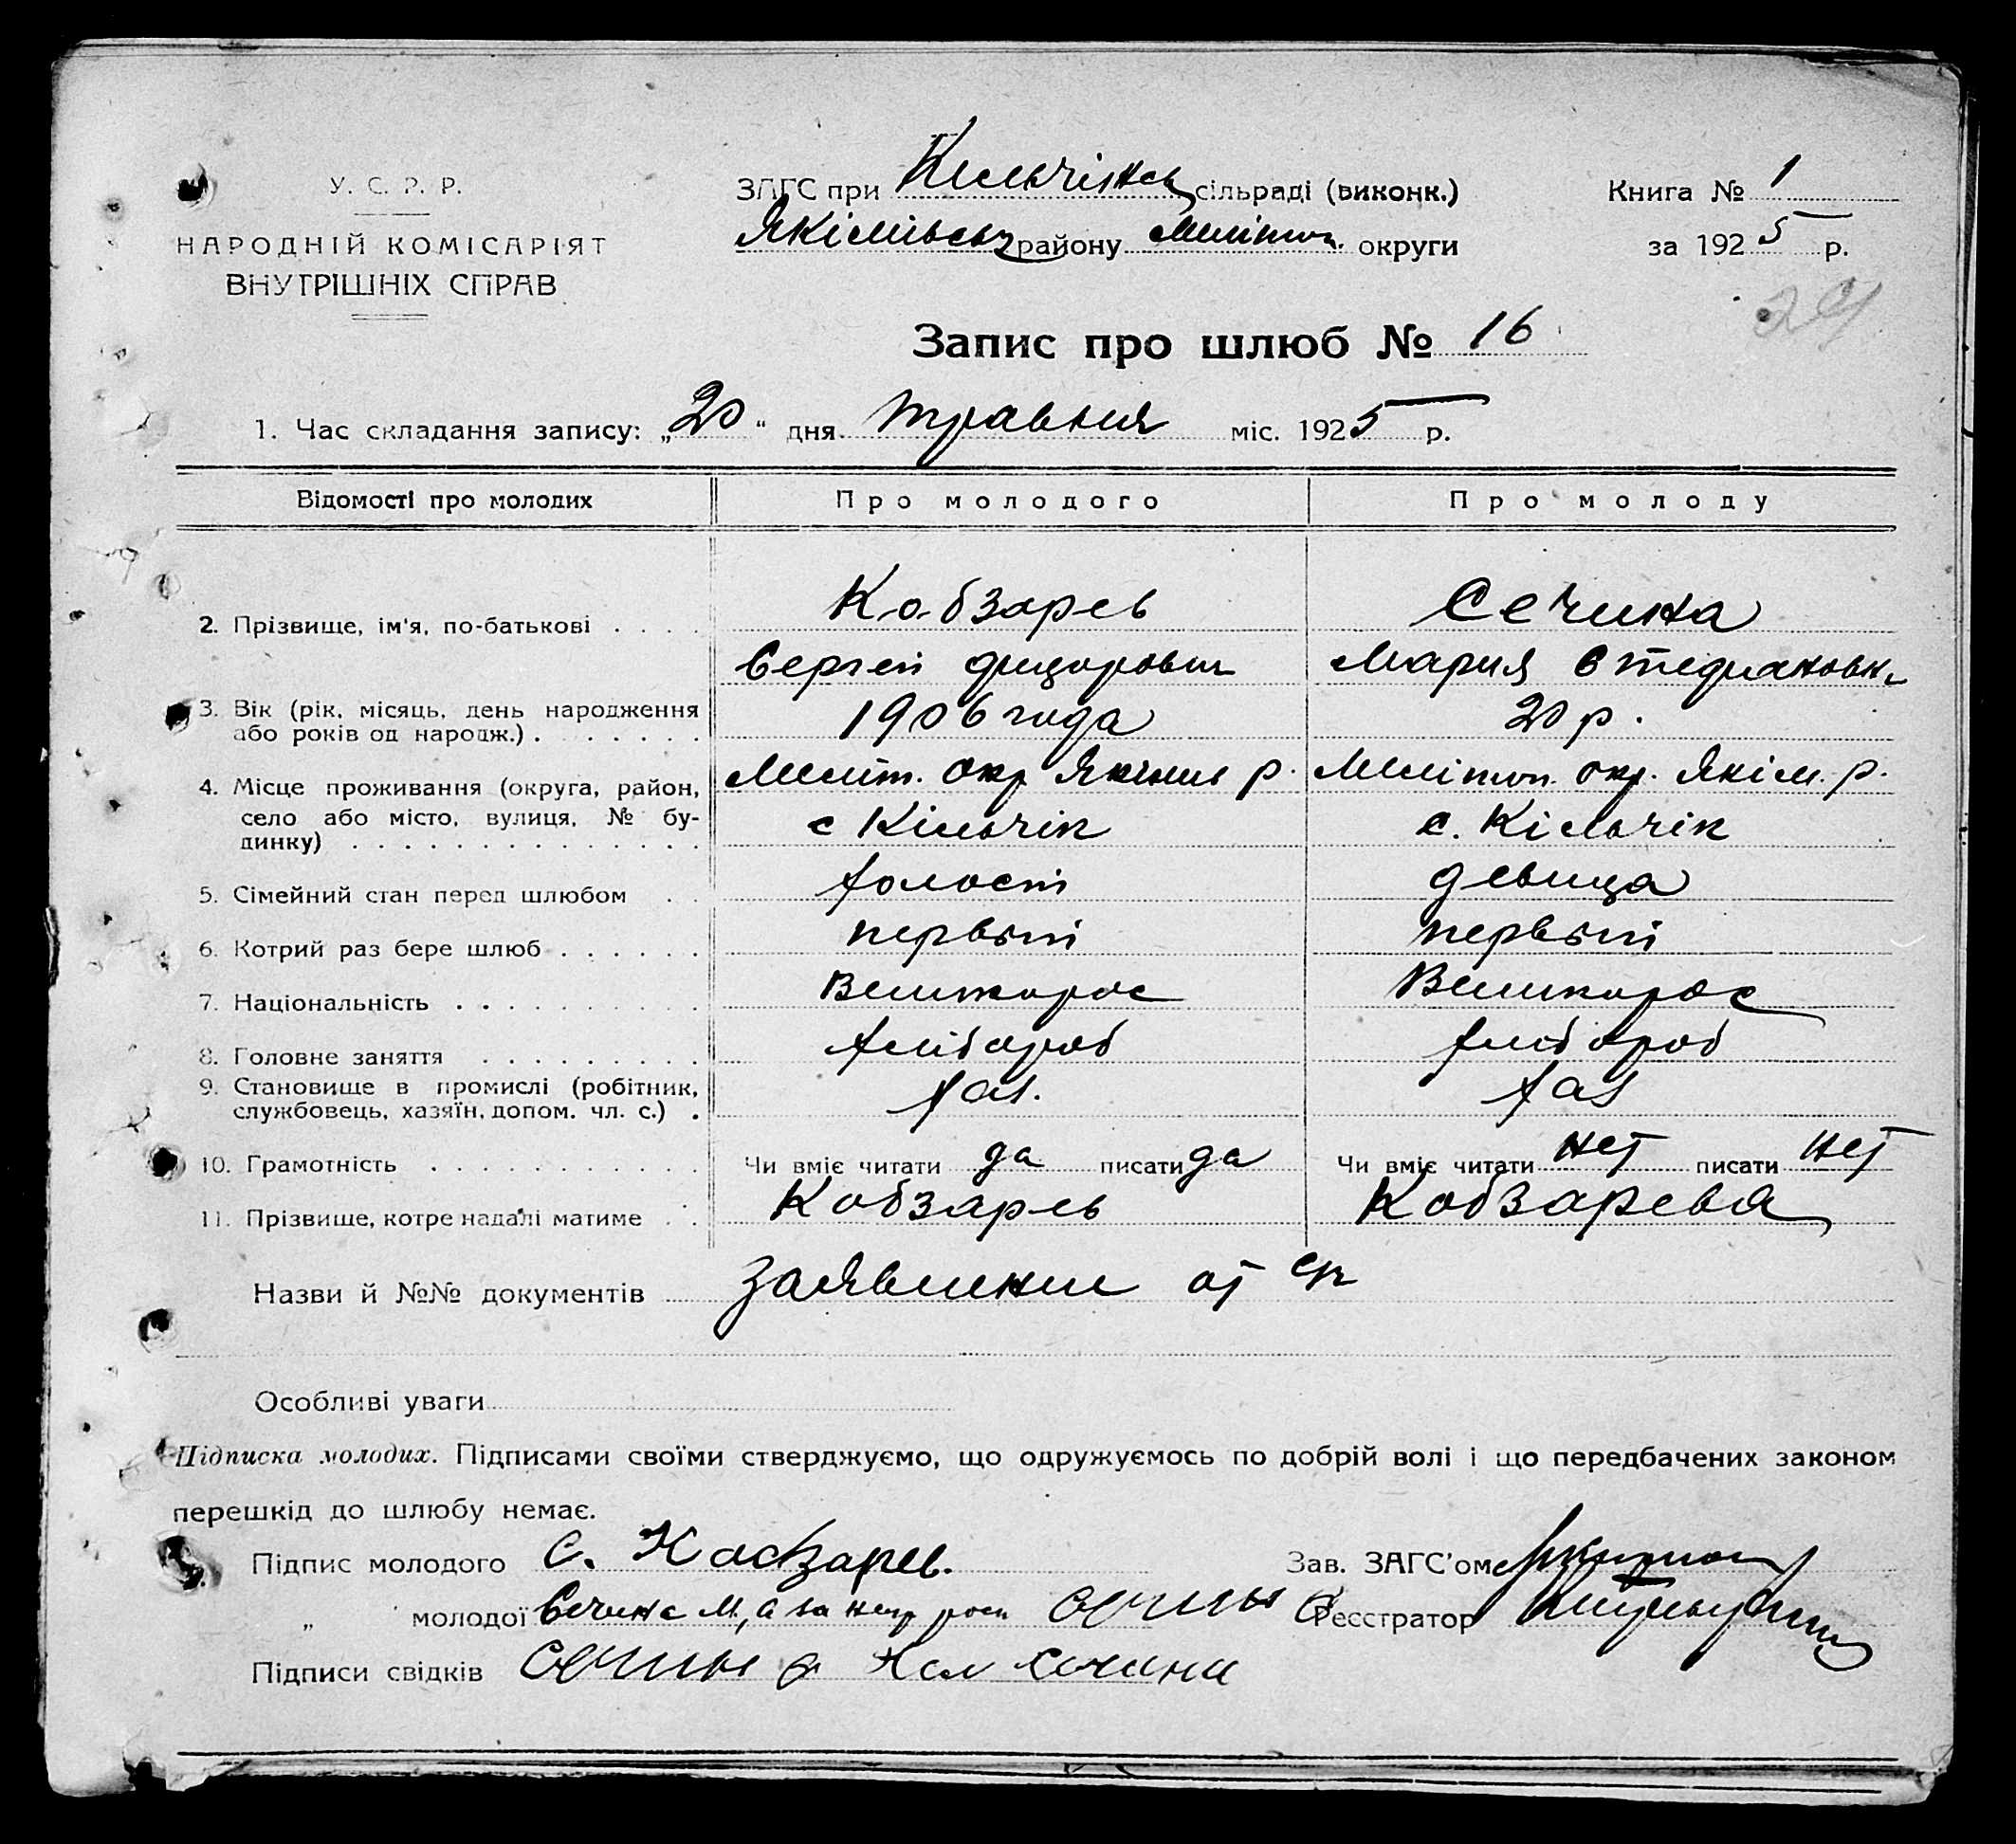 У. С. Р. Р.
НАРОДНІЙ КОМІСАРІЯТ
ВНУТРІШНІХ СПРАВ
ЗАГС при Кильчінськ сільраді (виконк.)
Якімівськ району Мелітоп. округи
Книга № 1
за 1925 р.
29
Запис про шлюб № 16
1. Час складання запису: „20“ дня травня міс. 1925 р.
Відомості про молодих Про молодого Про молоду
2. Прізвище, ім'я, по-батькові . . . . Кобзарев Сечина
Сергей Фицорович Мария Стефановн.
3. Вік (рік, місяць, день народження
або років од народж.) . . . . . . . 1906 года 20 р.
4. Місце проживання (округа, район, Меліт. окр Якимів р. Мелітоп. окр. Якім. р.
село або місто, вулиця, № бу-
динку) . . . . . . . . . . . . . . с Кільчік с. Кільчік
5. Сімейний стан перед шлюбом . . холост девица
6. Котрий раз бере шлюб . . . . . . первый первый
7. Національність . . . . . . . . . . Великорос Великорос
8. Головне заняття . . . . . . . . . хлібороб хлібороб
9. Становище в промислі (робітник,
службовець, хазяїн, допом. чл. с.) . хаз. хаз
10. Грамотність . . . . . . . . . . . Чи вміє читати да писати да Чи вміє читати нет писати нет
11. Прізвище, котре надалі матиме . . Кобзарев Кобзарева
Назви й №№ документів Заявлении от
Особливі уваги
Підписка молодих. Підписами своїми стверджуємо, що одружуємось по добрій волі і що передбачених законом
перешкід до шлюбу немає.
Підпис молодого С. Кобзарев. Зав. ЗАГС'ом
„ молодої Сечина М, а за негр росп Реєстратор
Підписи свідків